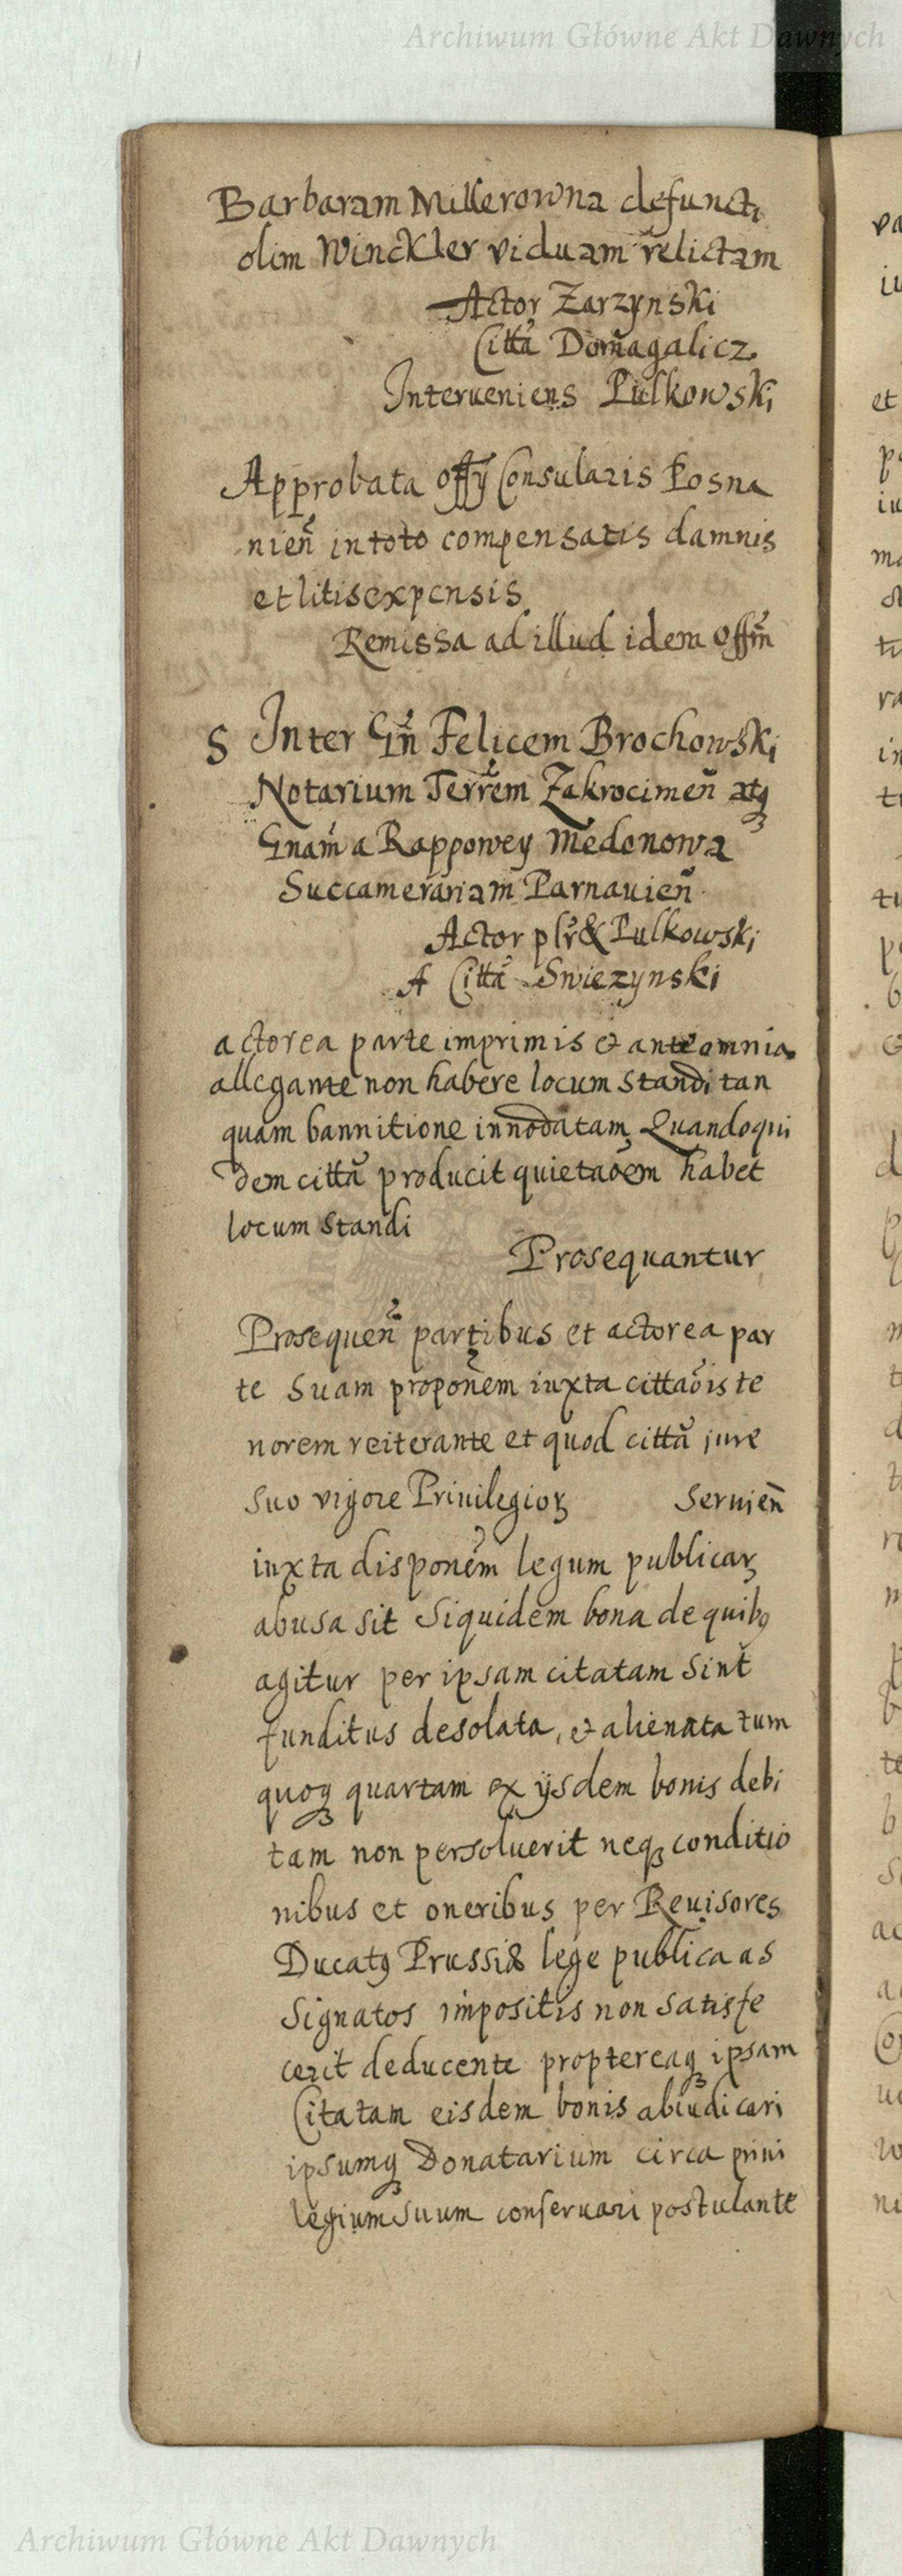 Archiwum Główne Akt Dawnych
Barbaram Millerowna defuncti
olim Winckler viduam relictam
Actor Zarzynski
Citta Domagalicz
Interueniens Pulkowski
Approbata Offy Consularis Posna
nien in toto compensatis damnis
et litis expensis
Remissa ad illud idem Offm
S Inter Gn Felicem Brochowski
Notarium Terrem Zakrocimen atq
Gnam a Rappowey Medenowa
Succamerariam Parnauien
Actor plr & Pulkowski
A Citta Swiezynski
actorea parte imprimis et ante omnia
allegante non habere locum standi tan
quam bannitione innodatam Quandoqui
dem citta producit quietaoem habet
locum standi
Prosequantur
Prosequen partibus et actorea par
te suam proponem iuxta cittaois te
norem reiterante et quod citta jure
suo vigore Priuilegioꝝ Seruien
iuxta disponem legum publicaꝝ
abusa sit siquidem bona de quibꝰ
agitur per ipsam citatam sint
funditus desolata, et alienata tum
quoqꝫ quartam ex ijsdem bonis debi
tam non persoluerit neqꝫ conditio
nibus et oneribus per Reuisores
Ducatꝰ Prussiæ lege publica as
signatos impositis non satisfe
cerit deducente proptereaqꝫ ipsam
Citatam eisdem bonis abiudicari
ipsumqꝫ Donatarium circa priui
legium suum conseruari postulante
Archiwum Główne Akt Dawnych